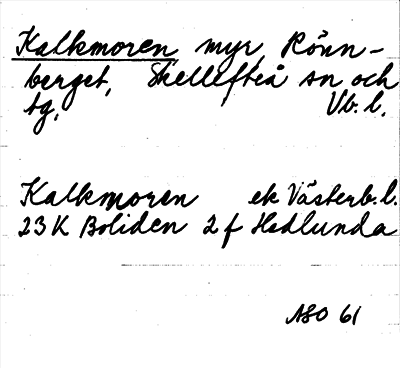 Kalkmoren, myr, Rönn-
berget, Skellefteå sn och
tg. Vb. l.
Kalkmoren ek Västerb. l.
23K Boliden 2f Hedlunda
ASO 61